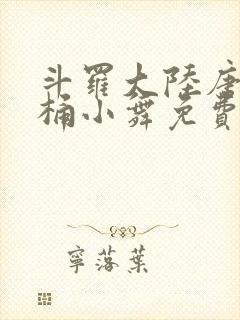 斗羅大陸唐
桶小舞免費
寧落葉